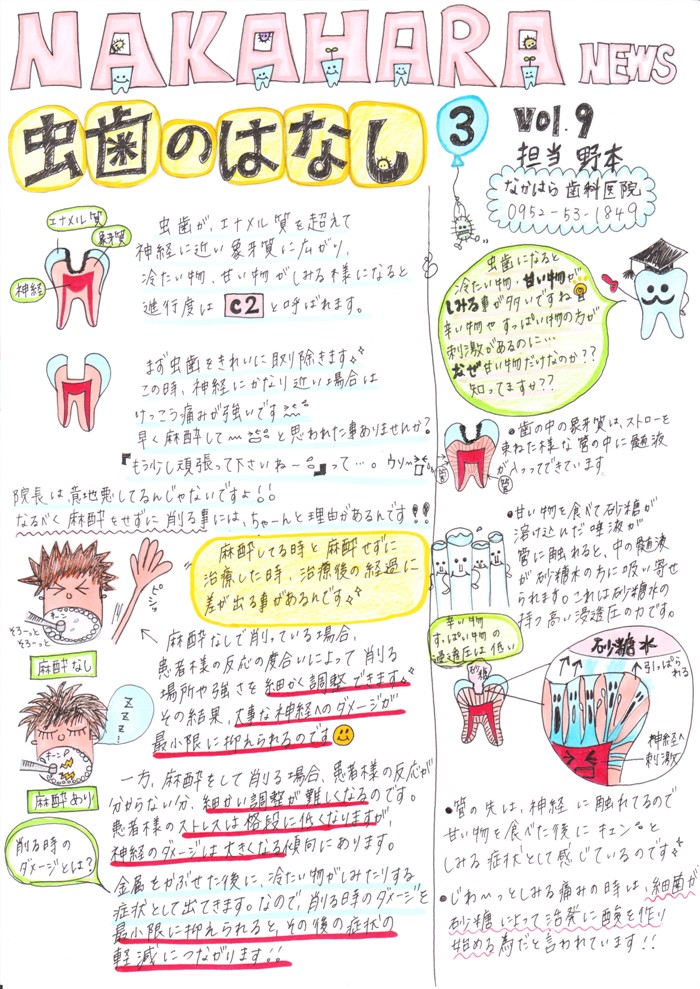 NAKAHARA NEWS
虫歯のはなし ③
Vol.9
担当 野本
なかはら歯科医院
0952-53-1849
エナメル質
象牙質
神経
虫歯が、エナメル質を超えて
神経に近い象牙質に広がり、
冷たい物、甘い物がしみる様になると
進行度は C2 と呼ばれます。
まず虫歯をきれいに取り除きます
この時、神経にかなり近い場合は
けっこう痛みが強いです
早く麻酔して〜 と思われた事ありませんか?
『もう少し頑張って下さいね〜』って…。ウソ〜
院長は意地悪してるんじゃないですよ!!
なるべく麻酔をせずに削る事には、ちゃーんと理由があるんです!!
麻酔してる時と麻酔せずに
治療した時、治療後の経過に
差が出る事があるんです
そろーっと
そろーっと
麻酔なし
麻酔なしで削っている場合、
患者様の反応の度合いによって削る
場所や強さを細かく調整できます。
その結果、大事な神経へのダメージが
最小限に抑えられるのです
ZZZ
麻酔あり
一方、麻酔をして削る場合、患者様の反応が
分からない分、細かい調整が難しくなるのです。
患者様のストレスは格段に低くなりますが、
神経のダメージは大きくなる傾向にあります。
削る時の
ダメージとは?
金属をかぶせた後に、冷たい物がしみたりする
症状として出てきます。なので、削る時のダメージを
最小限に抑えられると、その後の症状の
軽減につながります!!
虫歯になると
冷たい物・甘い物が
しみる事が多いですね
辛い物や すっぱい物の方が
刺激があるのに…
なぜ甘い物だけなのか??
知ってますせ??
•歯の中の象牙質は、ストローを
束ねた様な管の中に髄液
が入ってできています
管
管
•甘い物を食べて砂糖が
溶け込んだ唾液が
管に触れると、中の髄液
が砂糖水の方に吸い寄せ
られます。これは砂糖水の
持つ高い浸透圧の力です。
辛い物
すっぱい物の
浸透圧は低い
砂糖
砂糖水
引っぱられる
神経へ
刺激
•管の先は、神経に触れてるので
甘い物を食べた後にキュンっと
しみる症状として感じているのです
•じわ〜っとしみる痛みの時は、細菌が
砂糖によって活発に酸を作り
始める為だと言われています!!